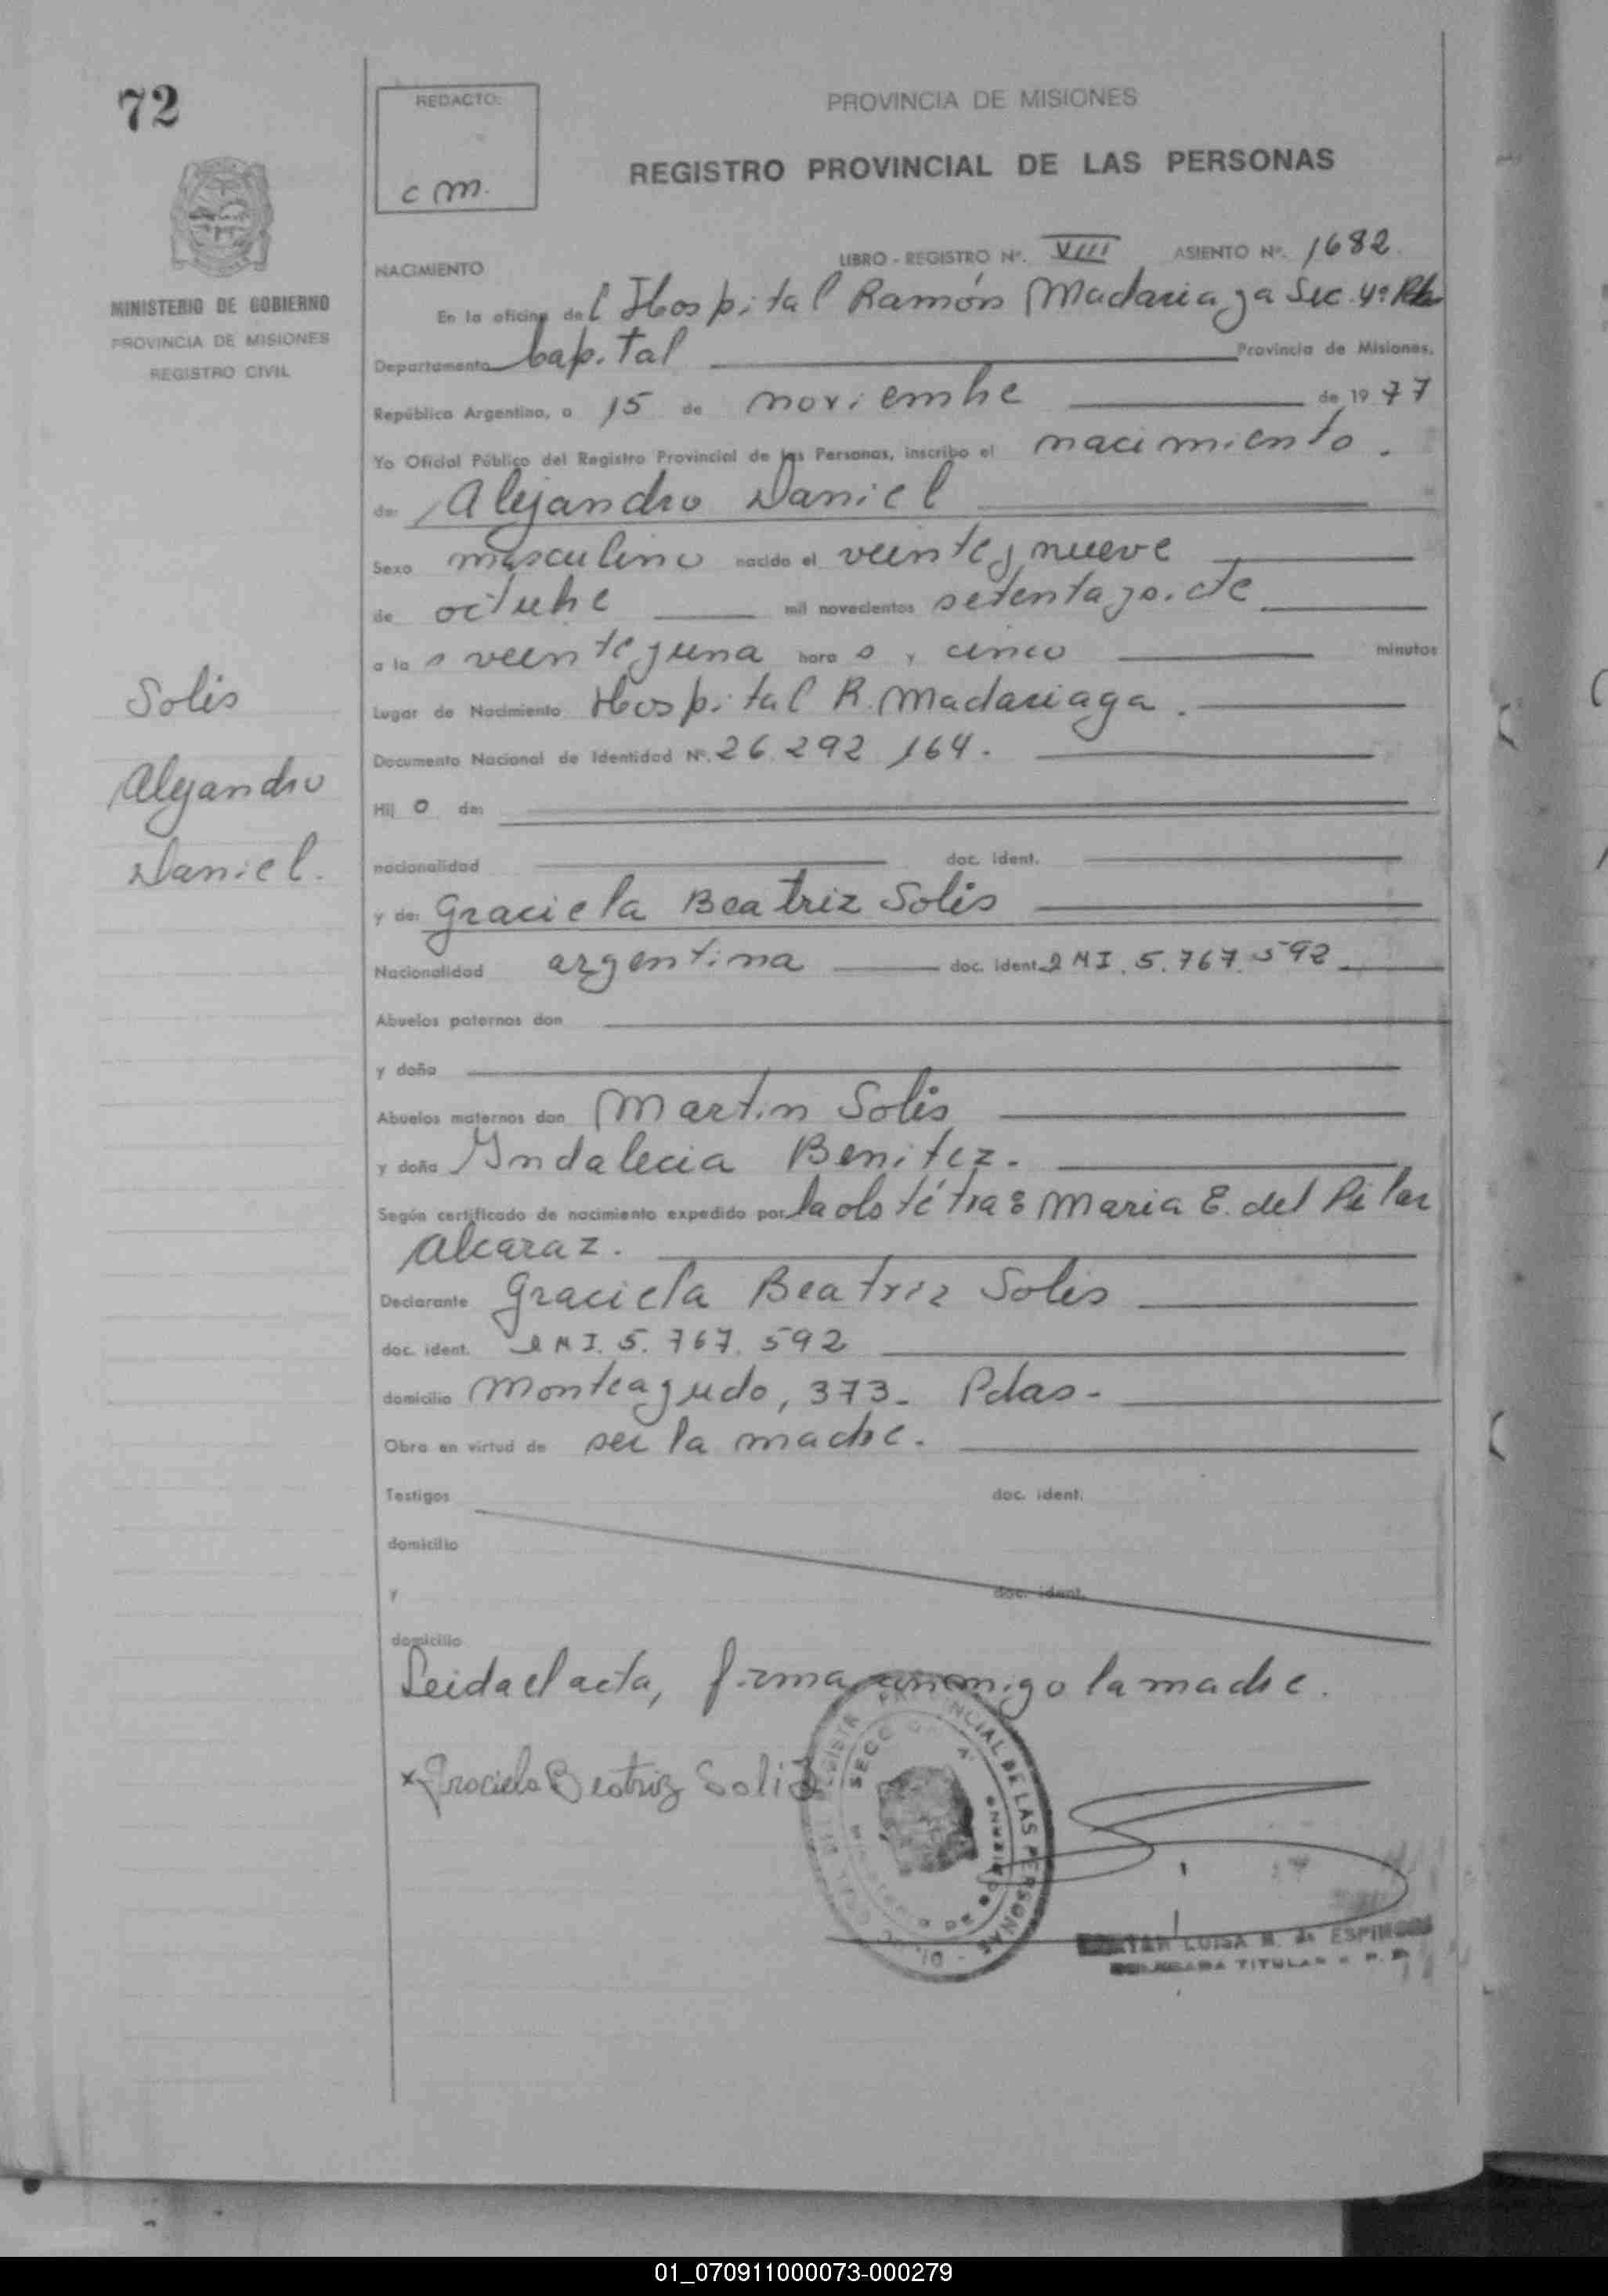 72
REDACTO:
c m.
PROVINCIA DE MISIONES
REGISTRO PROVINCIAL DE LAS PERSONAS
MINISTERIO DE GOBIERNO
PROVINCIA DE MISIONES
REGISTRO CIVIL
NACIMIENTO
LIBRO - REGISTRO Nº. VIII ASIENTO Nº. 1682
En la oficina del Hospital Ramón Madariaga Sec. 4ª
Departamento Capital Provincia de Misiones,
República Argentina, a 15 de noviembre de 1977
Yo Oficial Público del Registro Provincial de las Personas, inscribo el nacimiento.
de: Alejandro Daniel
Sexo masculino nacido el veintey nueve
de octubre mil novecientos setentaysiete
a la s veinteyuna hora s y cinco minutos
Solis
Alejandro
Daniel.
Lugar de Nacimiento Hospital R. Madariaga.
Documento Nacional de Identidad Nº. 26.292.164.
Hij o de:
nacionalidad doc. ident.
y de: Graciela Beatriz Solis
Nacionalidad argentina doc. ident. DNI. 5.767.592
Abuelos paternos don
y doña
Abuelos maternos don Martin Solis
y doña Indalecia Benitez.
Según certificado de nacimiento expedido por la obstétra: Maria E. del Pilar
Alcaraz.
Declarante Graciela Beatriz Solis
doc. ident. DNI. 5.767.592
domicilio Monteagudo, 373- Pdas-
Obra en virtud de ser la madre.
Testigos doc. ident.
domicilio
y doc. ident.
domicilio
Leida el acta, firma conmigo la madre.
x Graciela Beatriz Solis
REGISTRO PROVINCIAL DE LAS PERSONAS
LUISA ESPINOSA
TITULAR
01_070911000073-000279